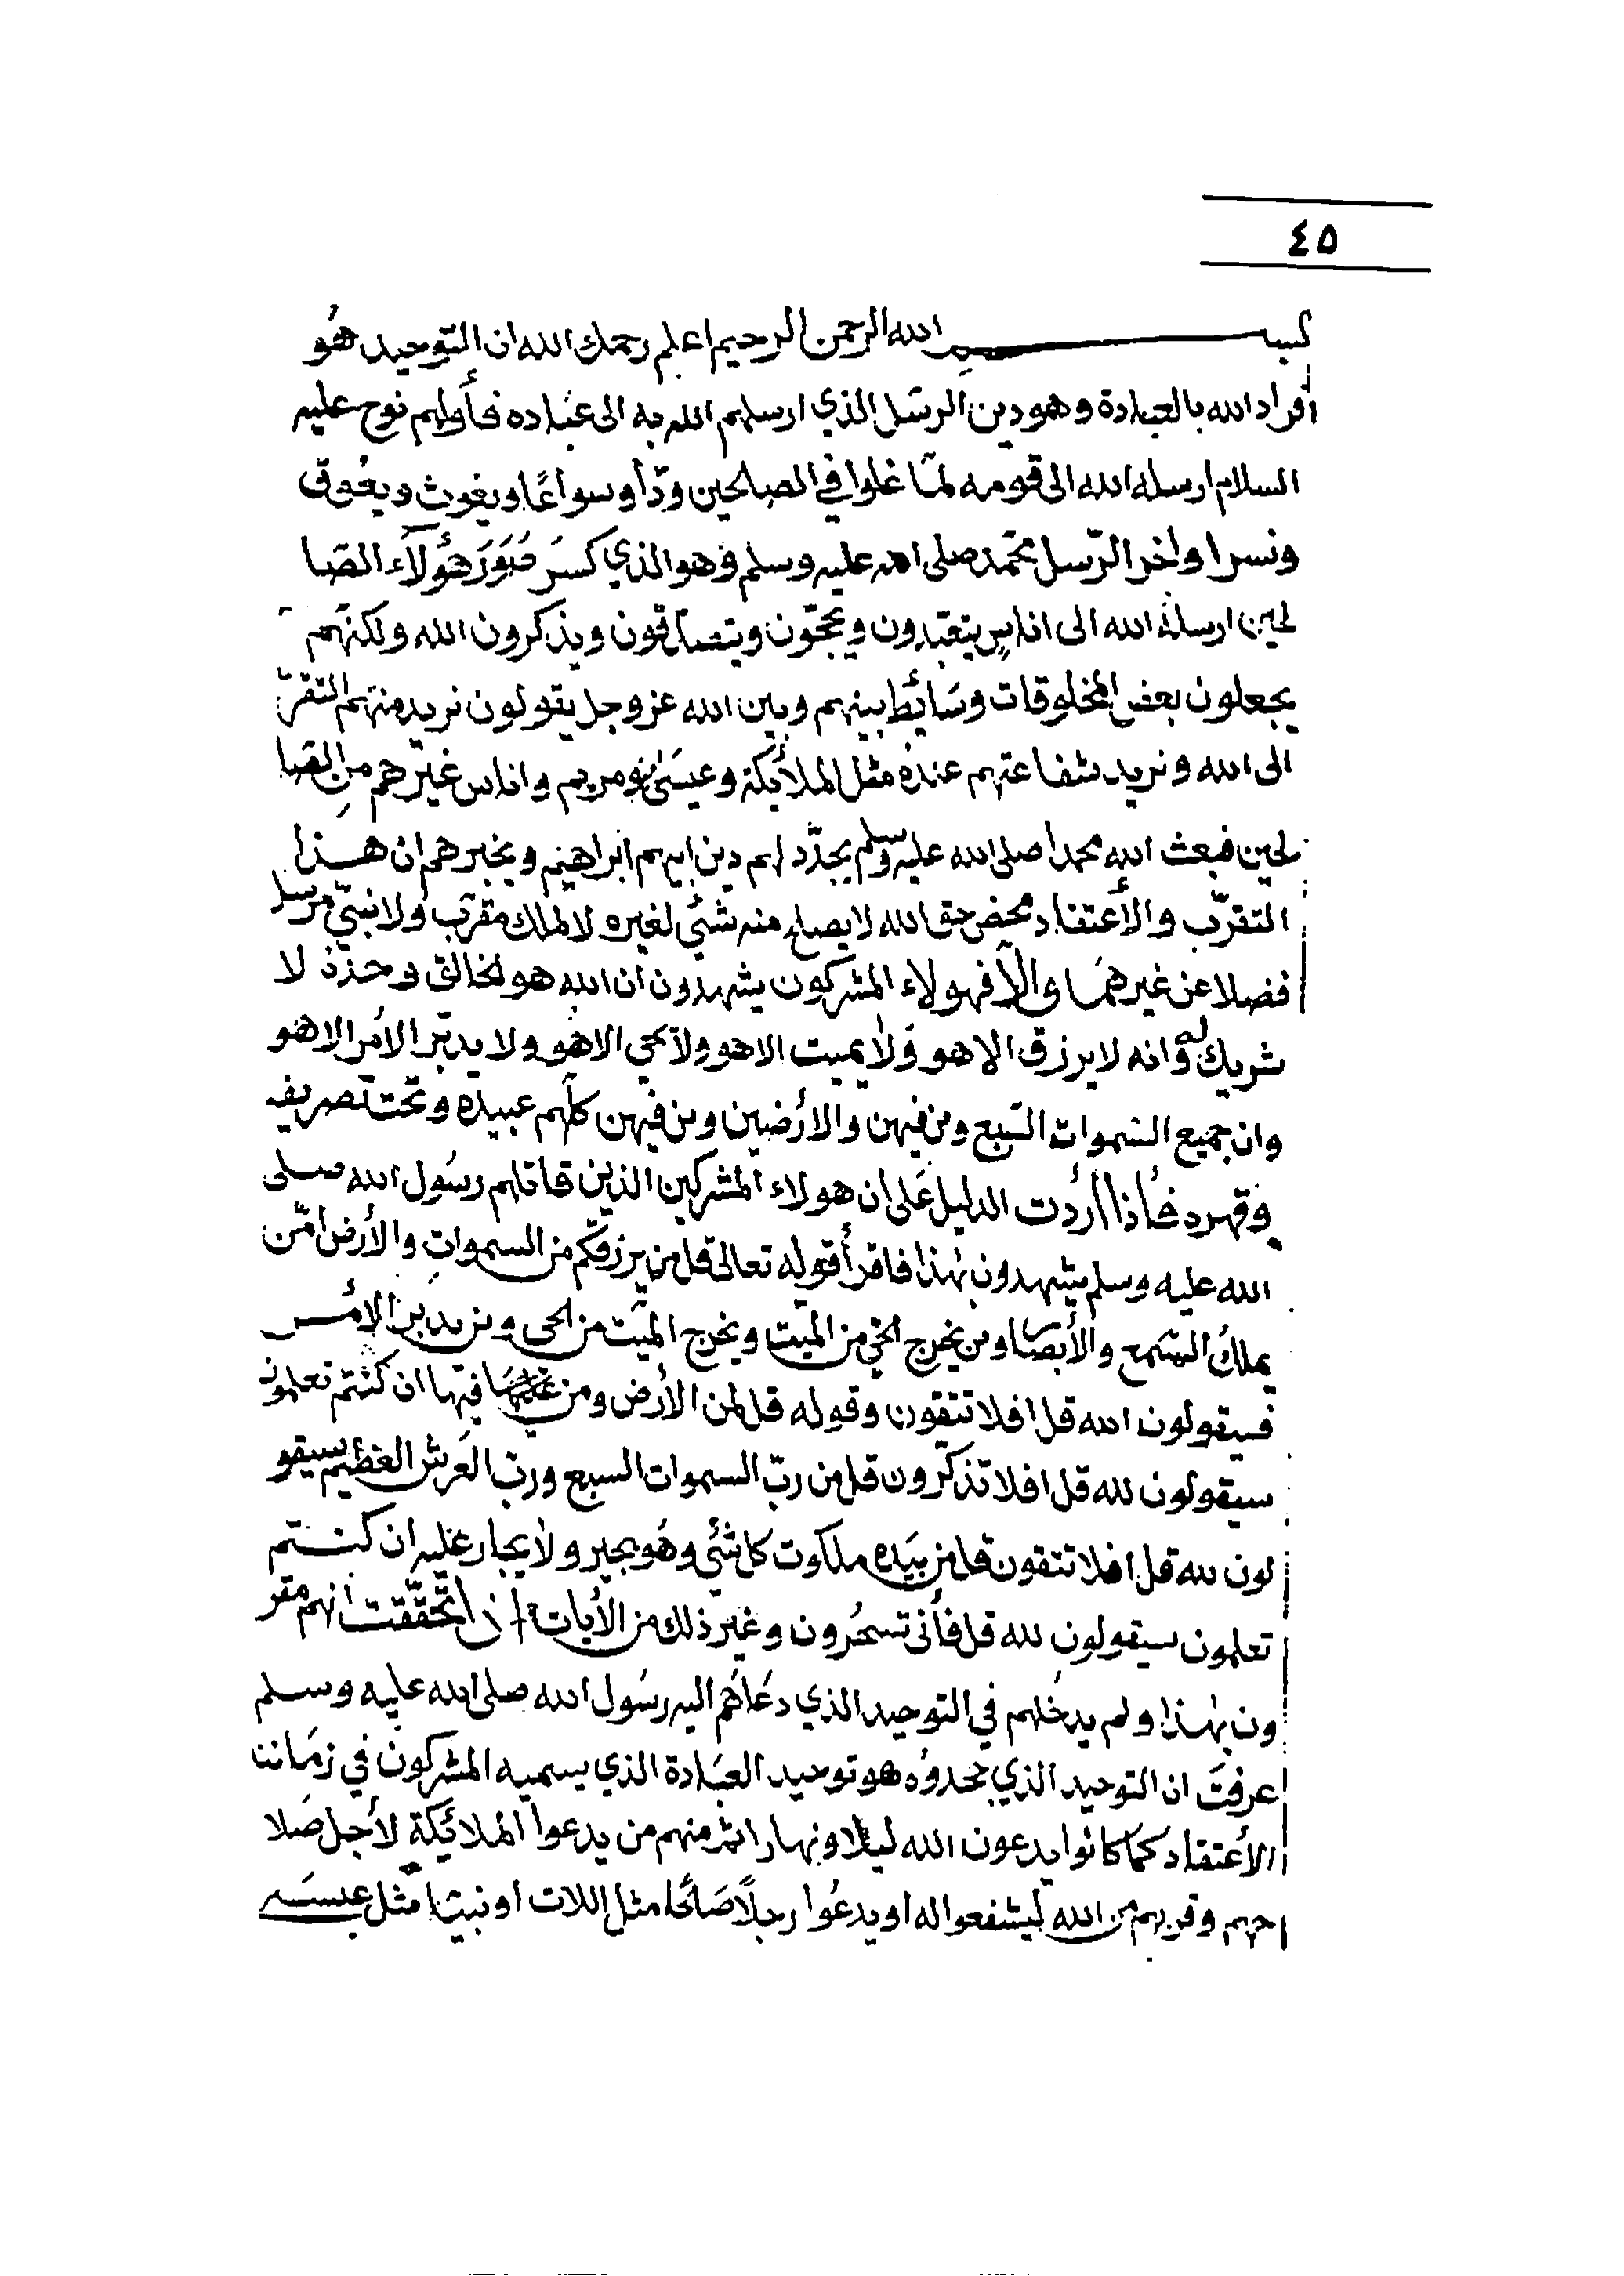 ٤٥
بسم الله الرحمن الرحيم اعلم رحمك الله ان التوحيد هو
أفراد الله بالعبادة وهو دين الرسل الذي ارسلهم الله به الى عباده فأولهم نوح عليه
السلام ارسله الله الى قومه لما غلوا في الصالحين ودّا وسواعًا ويغوث ويعوق
ونسرا واخر الرّسل محمّد صلى الله عليه وسلم وهو الذي كسر صور هؤلآء الصا
لحين ارسله الله الى اناس يتعبّدون ويحجّون ويتصدقون ويذكرون الله ولكنّهم
يجعلون بعض المخلوقات وسائط بينهم وبين الله عز وجل يقولون نريد منهم التقرّب
الى الله ونريد شفاعتهم عنده مثل الملائكة وعيسى ومريم واناس غيرهم من الصا
لحين فبعث الله محمدا صلى الله عليه وسلم يجدّد لهم دين ابيهم ابراهيم ويخبرهم ان هذا
التقرّب والأعتقاد محض حق الله لا يصلح منه شئ لغيره لا لملك مقرّب ولا نبيّ مرسل
فضلا عن غيرهما والآ فهولاء المشركون يشهدون ان الله هو الخالق وحده لا
شريك له وانه لا يرزق الا هو ولا يميت الا هو ولا يحي الا هو ولا يدبّر الأمر الا هو
وان جميع السموات السّبع ومن فيهن والارضين ومن فيهن كلّهم عبيده وتحت تصريفه
وقهره فأذا أردت الدليل على ان هولاء المشركين الذين قاتلهم رسول الله صلى
الله عليه وسلم يشهدون بهذا فاقرأ قوله تعالى قل من يرزقكم من السموات والأرض امّن
يملك السّمع والأبصار ومن يخرج الحي من الميّت ويخرج الميّت من الحى ومن يدبر الأمر
فسيقولون الله قل افلا تتقون وقوله قل لمن الأرض ومن فيها ان كنتم تعلمون
سيقولون لله قل افلا تذكّرون قل من ربّ السموات السبع وربّ العرش العظيم سيقو
لون لله قل افلا تتقون قل من بيده ملكوت كل شئ وهو يجير ولا يجار عليه ان كنتم
تعلمون سيقولون لله قل فأنى تسحرون وغير ذلك من الأيات اذا تحقّقت انهم مقر
ون بهذا ولم يدخلهم في التوحيد الذي دعاهم اليه رسول الله صلى الله عليه وسلم
عرفت ان التوحيد الذي جحدوه هو توحيد العبادة الذي يسميه المشركون في زماننا
الأعتقاد كما كانوا يدعون الله ليلا ونهارا ثم منهم من يدعوا الملائكة لأجل صلا
حهم وقربهم من الله ليشفعوا له او يدعوا رجلاً صالحا مثل اللات او نبيّا مثل عيسى